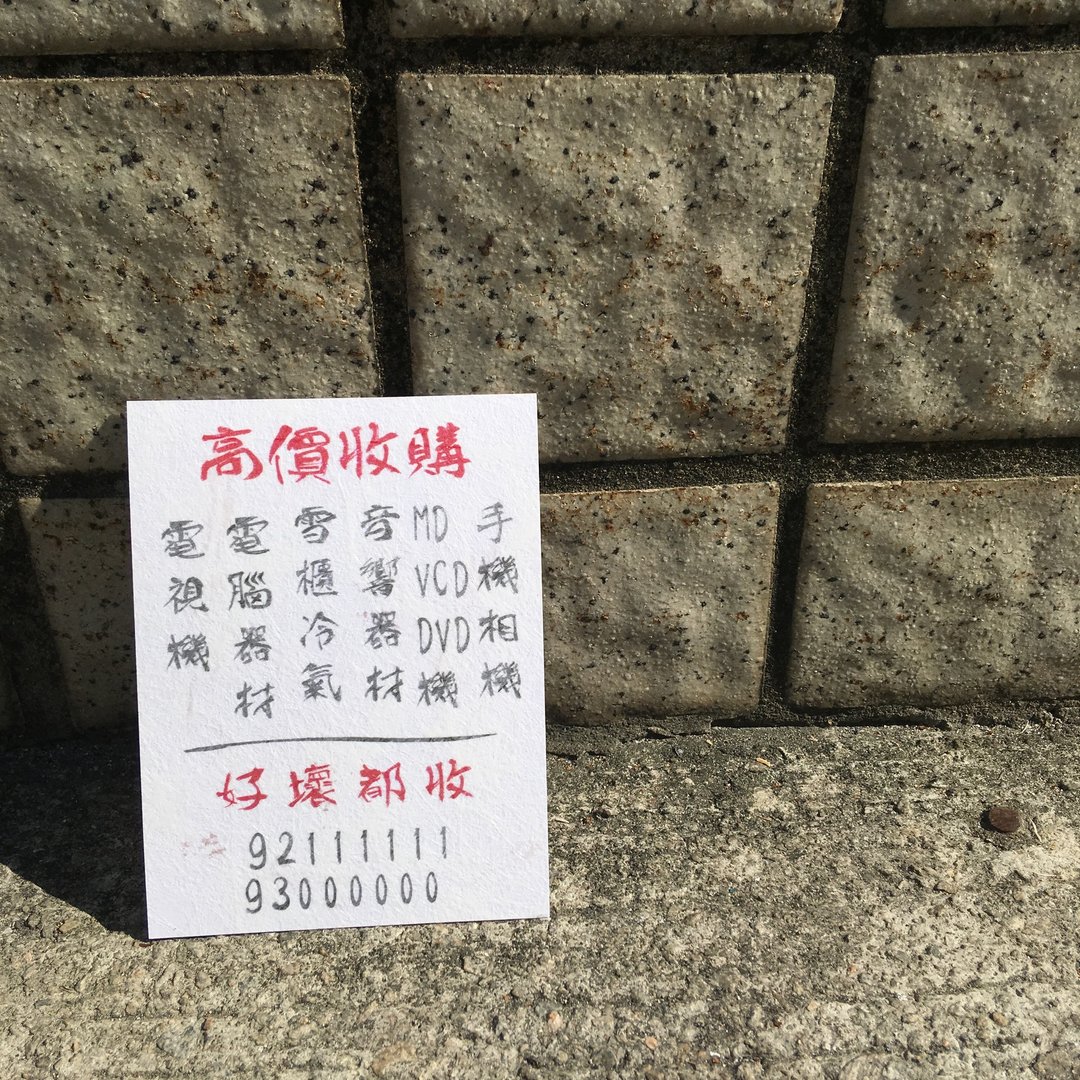 高價收購
手機相機
MD VCD DVD機
音響器材
雪櫃冷氣
電腦器材
電視機
好壞都收
92111111
93000000